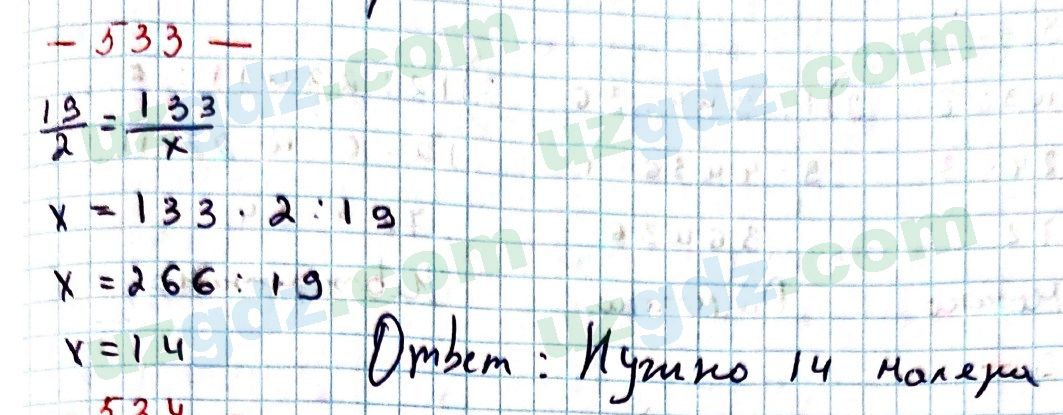 - 533 -
19/2 = 133/x
x = 133 · 2 : 19
x = 266 : 19
x = 14
Ответ: Нужно 14 маляра
534
uzgdz.com
uzgdz.com
uzgdz.com
uzgdz.com